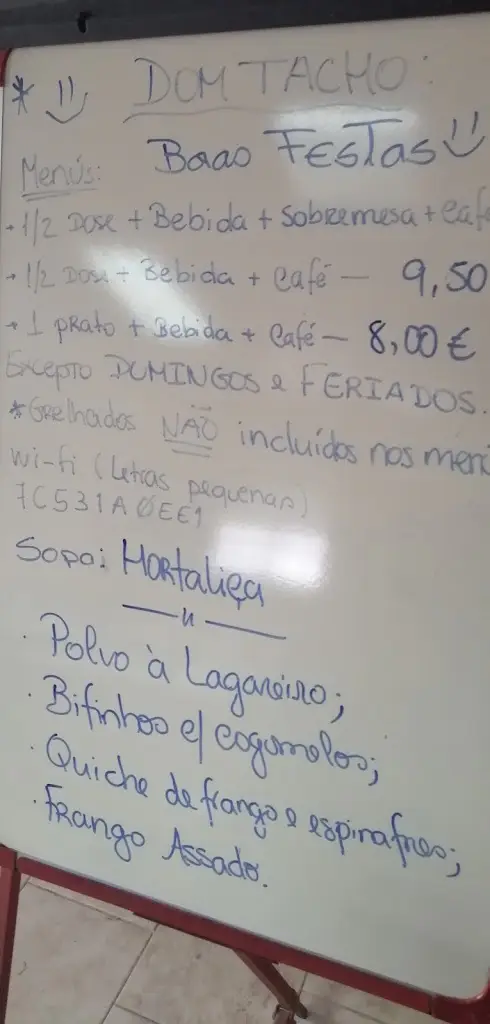 * DOM TACHO:
Boas FESTAS
Menús:
• 1/2 Dose + Bebida + Sobremesa + Café
• 1/2 Dose + Bebida + Café — 9,50
• 1 prato + Bebida + Café — 8,00 €
Excepto DOMINGOS e FERIADOS.
*Grelhados NÃO incluídos nos menú
Wi-fi (Letras pequenas)
7C531A0EE1
Sopa: Hortaliça
— 11 —
• Polvo à Lagareiro;
• Bifinhos c/ cogumelos;
• Quiche de frango e espinafres;
• Frango Assado.